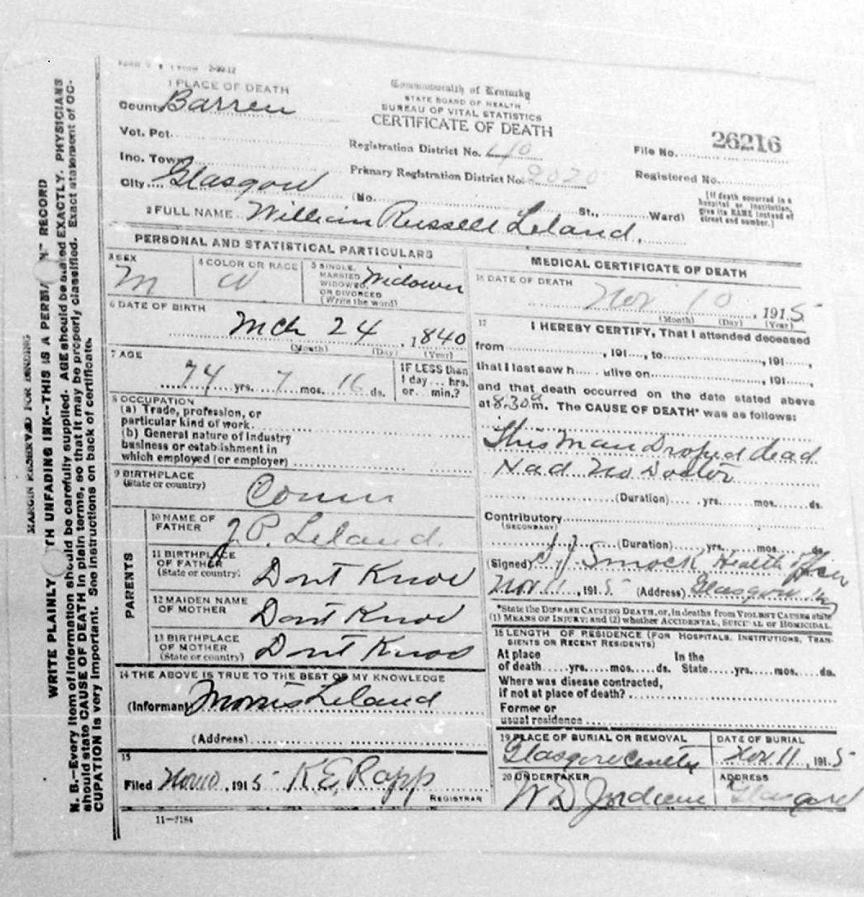 1 PLACE OF DEATH
County Barren
Vot. Pct.
Inc. Town
City Glasgow
(No. St., Ward)
Commonwealth of Kentucky
STATE BOARD OF HEALTH
BUREAU OF VITAL STATISTICS
CERTIFICATE OF DEATH
Registration District No. 40
Primary Registration District No. 2020
File No. 26216
Registered No.
[If death occurred in a
hospital or institution,
give its NAME instead of
street and number.]
2 FULL NAME William Russell Leland,
PERSONAL AND STATISTICAL PARTICULARS
3 SEX
M
4 COLOR OR RACE
W
5 SINGLE,
MARRIED
WIDOWED,
OR DIVORCED
(Write the word)
Widower
6 DATE OF BIRTH
Mch 24, 1840
(Month) (Day) (Year)
7 AGE
74 yrs. 7 mos. 16 ds.
IF LESS than
1 day... hrs.
or... min.?
8 OCCUPATION
(a) Trade, profession, or
particular kind of work.
(b) General nature of industry
business or establishment in
which employed (or employer)
9 BIRTHPLACE
(State or country)
Conn
PARENTS
10 NAME OF
FATHER
J. P. Leland.
11 BIRTHPLACE
OF FATHER
(State or country)
Dont Know
12 MAIDEN NAME
OF MOTHER
Dont Know
13 BIRTHPLACE
OF MOTHER
(State or country)
Dont Know
14 THE ABOVE IS TRUE TO THE BEST OF MY KNOWLEDGE
(Informant) Morris Leland
(Address)
15
Filed Nov 10, 1915 K. E. Rapp
REGISTRAR
11-3184
MEDICAL CERTIFICATE OF DEATH
16 DATE OF DEATH
Nov 10, 1915
(Month) (Day) (Year)
17
I HEREBY CERTIFY, That I attended deceased
from, 191...., to, 191....,
that I last saw h.... alive on, 191....,
and that death occurred on the date stated above
at 8.30 a m. The CAUSE OF DEATH* was as follows:
This Man Droped dead
Had No Doctor
(Duration) yrs. mos. ds.
Contributory
(SECONDARY)
(Duration) yrs. mos. ds.
(Signed) Smock Health officer
Nov 11, 1915 (Address) Glasgow Ky
*State the DISEASE CAUSING DEATH, or, in deaths from VIOLENT CAUSES state
(1) MEANS OF INJURY; and (2) whether ACCIDENTAL, SUICIDAL or HOMICIDAL.
18 LENGTH OF RESIDENCE (FOR HOSPITALS, INSTITUTIONS, TRAN-
SIENTS OR RECENT RESIDENTS)
At place
of death yrs. mos. ds.
In the
State yrs. mos. ds.
Where was disease contracted,
if not at place of death?
Former or
usual residence
19 PLACE OF BURIAL OR REMOVAL
Glasgow
DATE OF BURIAL
Nov. 11, 1915
20 UNDERTAKER
W D Jordan
ADDRESS
Glasgow
MARGIN RESERVED FOR BINDING
WRITE PLAINLY TH UNFADING INK--THIS IS A PERMA T RECORD
N. B.--Every item of information should be carefully supplied. AGE should be stated EXACTLY. PHYSICIANS
should state CAUSE OF DEATH in plain terms, so that it may be properly classified. Exact statement of OC-
CUPATION is very important. See instructions on back of certificate.